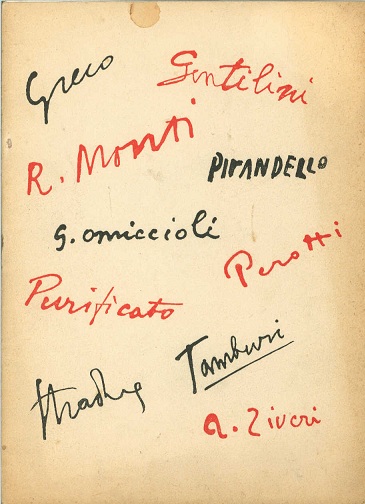 Greco
Gentilini
R. Monti
PIRANDELLO
G. omiccioli
Perotti
Purificato
Tamburi
Stradone
A. Ziveri